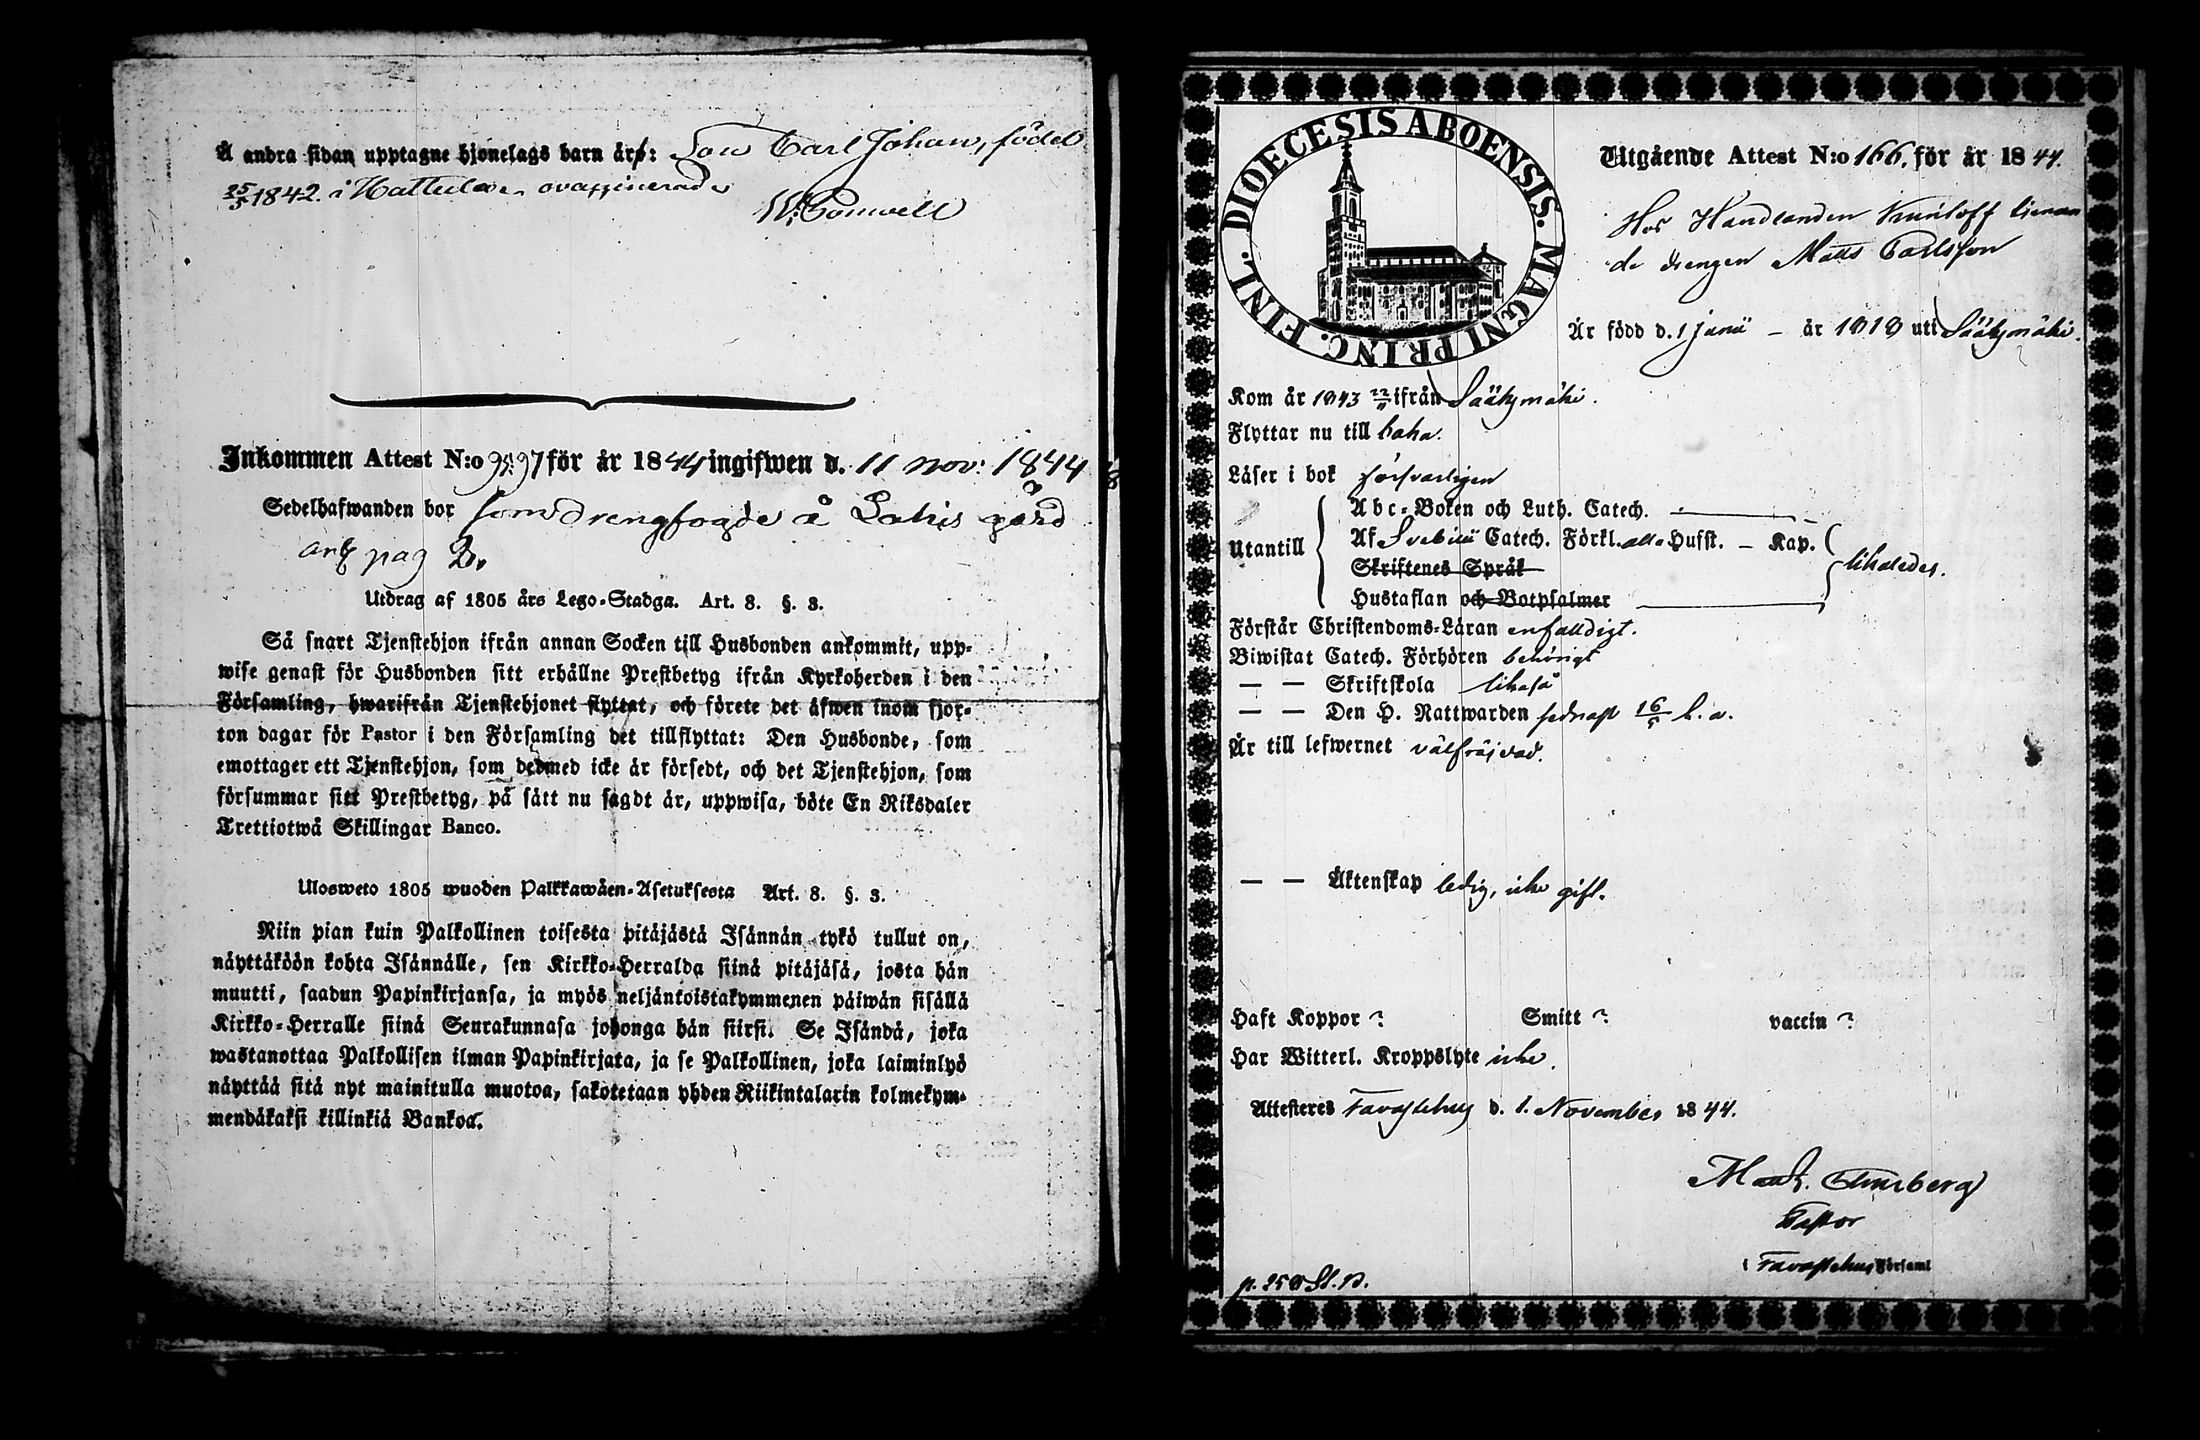 A andra sidan upptagne hjonelags barn äro: Son Carl Johan, född
25/5 1842. i Hattula, ovaccinerad
Inkommen Attest N:o 95. 97 för år 1844 ingifwen d. 11 nov: 1844
Sedelhafwanden bor som drengfogde å Lahis gård
pag 2.
Utdrag af 1805 års Lego-Stadga. Art. 8. §. 3.
Så snart Tjenstehjon ifrån annan Socken till Husbonden ankommit, upp-
wise genast för Husbonden sitt erhållne Prestbetyg ifrån Kyrkoherden i den
Församling, hwarifrån Tjenstehjonet flyttat, och förete det äfwen inom fjor-
ton dagar för Pastor i den Församling det tillflyttat: Den Husbonde, som
emottager ett Tjenstehjon, som dermed icke är försedt, och det Tjenstehjon, som
försummar sitt Prestbetyg, på sätt nu sagdt är, uppwisa, böte En Riksdaler
Trettiotwå Skillingar Banco.
Ulosweto 1805 wuoden Palkkawäen-Asetuksesta Art. 8. §. 3.
Niin pian kuin Palkollinen toisesta pitäjästä Isännän tykö tullut on,
näyttäköön kohta Isännälle, sen Kirkko-Herralda siinä pitäjäsä, josta hän
muutti, saadun Papinkirjansa, ja myös neljäntoistakymmenen päiwän sisällä
Kirkko-Herralle siinä Seurakunnasa johonga hän siirsi. Se Isändä, joka
wastanottaa Palkollisen ilman Papinkirjata, ja se Palkollinen, joka laiminlyö
näyttää sitä nyt mainitulla muotoa, sakotetaan yhden Riikintalarin kolmekym-
mendäkaksi killinkiä Bankoa.
DIOECESIS ABOENSIS. MAGNI PRINC. FINL.
Utgående Attest N:o 166, för år 1844.
Hos Handlanden tjenan
de drengen Matts Carlsson
Är född d. 1 Junii – år 1818 uti Sääksmäki.
Kom år 1843 22/11 ifrån Sääksmäki.
Flyttar nu till baka.
Läser i bok försvarligen
Abc-Boken och Luth. Catech.
Utantill Af Svebilii Catech. Förkl. alla Hufst. – Kap. likaledes.
Skriftenes Språk
Hustaflan och Botpsalmer
Förstår Christendoms-Läran enfaldigt.
Biwistat Catech. Förhören behörigt
— — Skriftskola likaså
— — Den H. Nattwarden sednast 16/5 h. a.
Är till lefwernet välfräjdad.
— — Äktenskap ledig, icke gift.
Haft Koppor ? Smitt ? vaccin ?
Har Witterl. Kroppslyte icke.
Attesteres Tavastehus d. 1. November 1844.
Pastor
i Tavastehus Församl